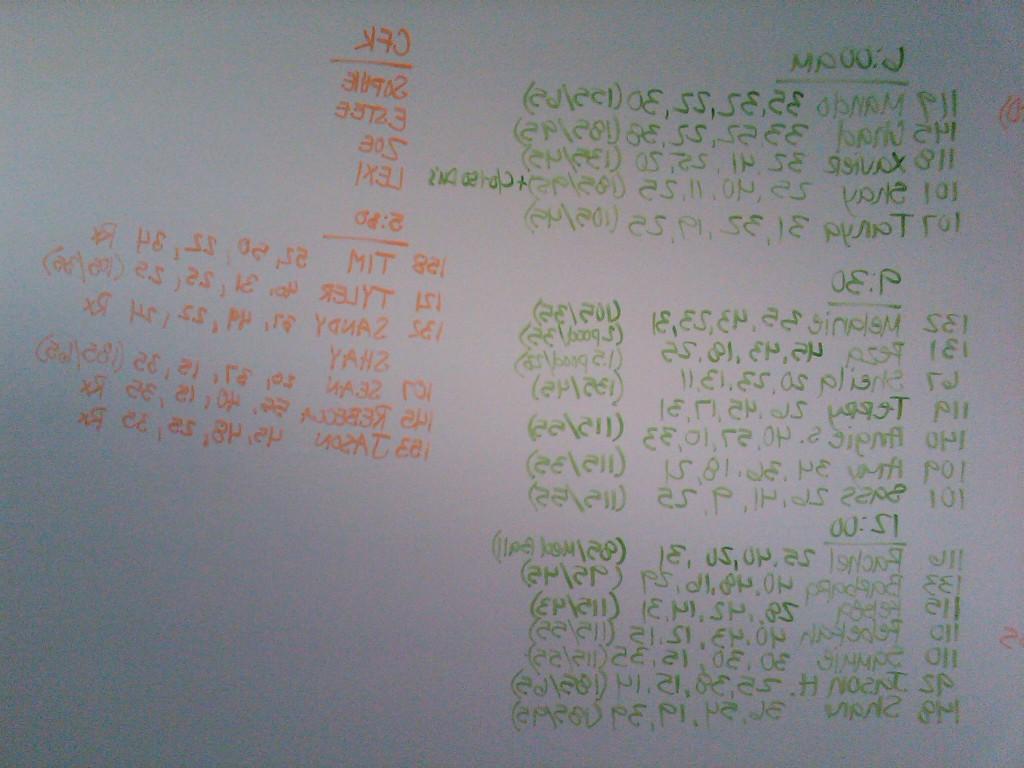 6:00am
119 Mando 35,32,22,30 (155/65)
145 Chad 33,52,22,38 (185/95)
118 Xavier 32,41,25,20 (135/45)
101 Shay 25,40,11,25 (185/95)
107 Tanya 31,32,19,25 (105/45)
9:30
132 Melanie 35,43,23,31 (105/35)
131 Reza 45,43,18,25 (2pood/35)
67 Sheila 20,23,13,11 (135/45)
119 Terry 26,45,17,31
140 Angie S. 40,57,10,33 (115/55)
109 Ana 34,36,18,21 (115/35)
101 Bass 26,41,9,25 (115/55)
12:00
116 Rachel 25,40,20,31 (85/Med Ball)
133 Barbara 40,48,16,29 (95/45)
115 28,42,14,31 (115/43)
110 Deborah 40,43,12,15 (115/55)
110 30,30,15,35 (115/55)
92 Jason H. 25,38,15,14 (185/65)
148 Shane 36,54,19,39 (185/95)
CFK
SOPHIE
ESTEE
ZOE
LEXI
5:30
158 TIM 52, 50, 22, 34 Rx
121 TYLER 40, 31, 25, 25 (105/35)
132 SANDY 37, 49, 22, 24 Rx
SHAY
107 SEAN 20, 37, 15, 35 (185/65)
145 REBECCA 55, 40, 15, 35 Rx
153 JASON 45, 48, 25, 35 Rx